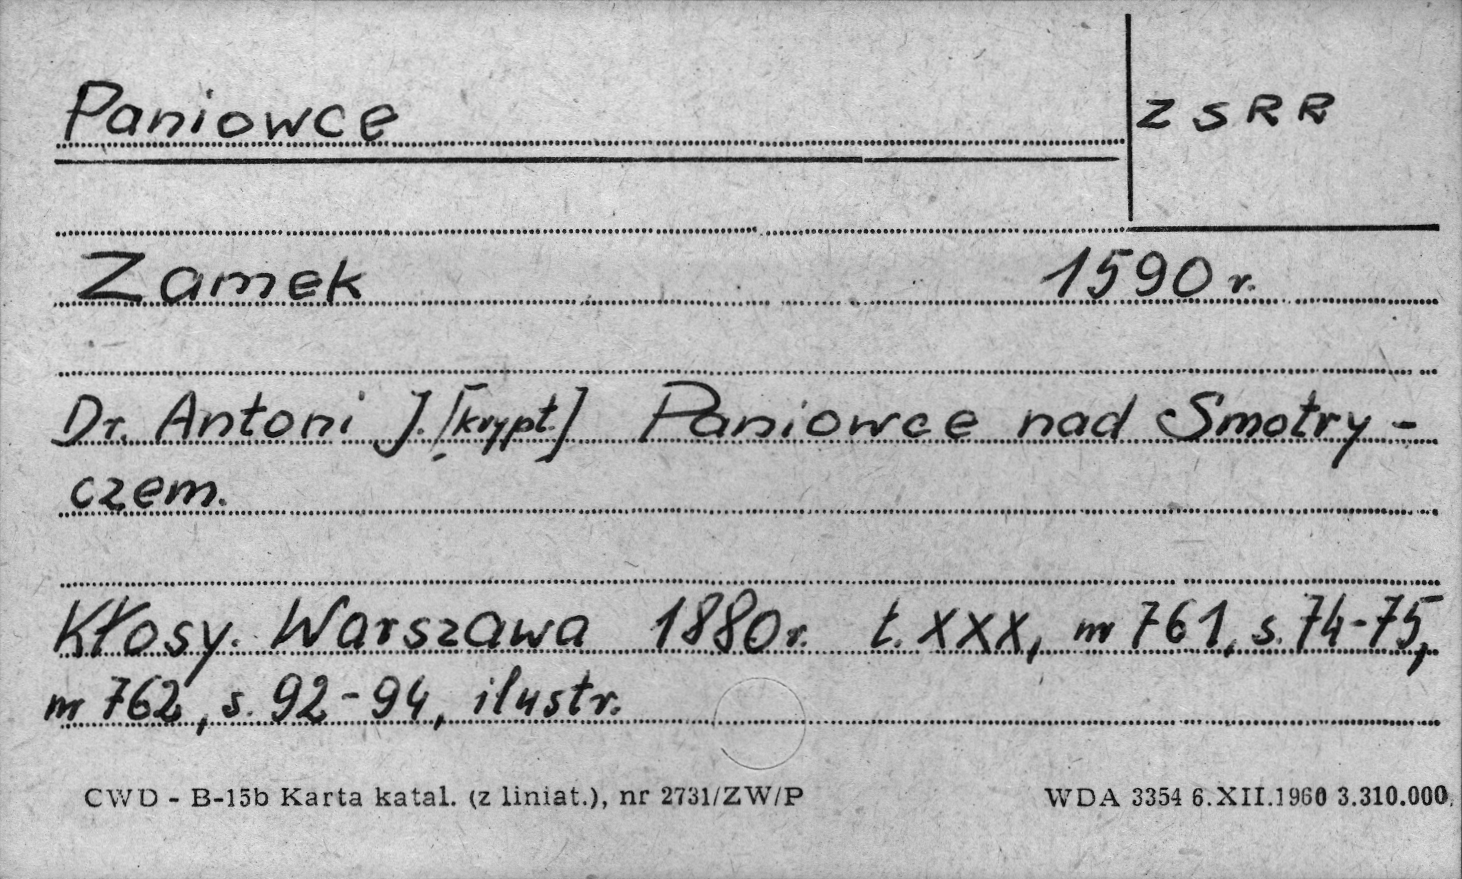 Paniowce
ZSRR
Zamek 1590 r.
Dr. Antoni J. [krypt.] Paniowce nad Smotry-
czem.
Kłosy. Warszawa 1880 r. t. XXX, nr 761, s. 74-75,
nr 762, s. 92-94, ilustr.
CWD - B-15b Karta katal. (z liniat.), nr 2731/ZW/P
WDA 3354 6.XII.1960 3.310.000.